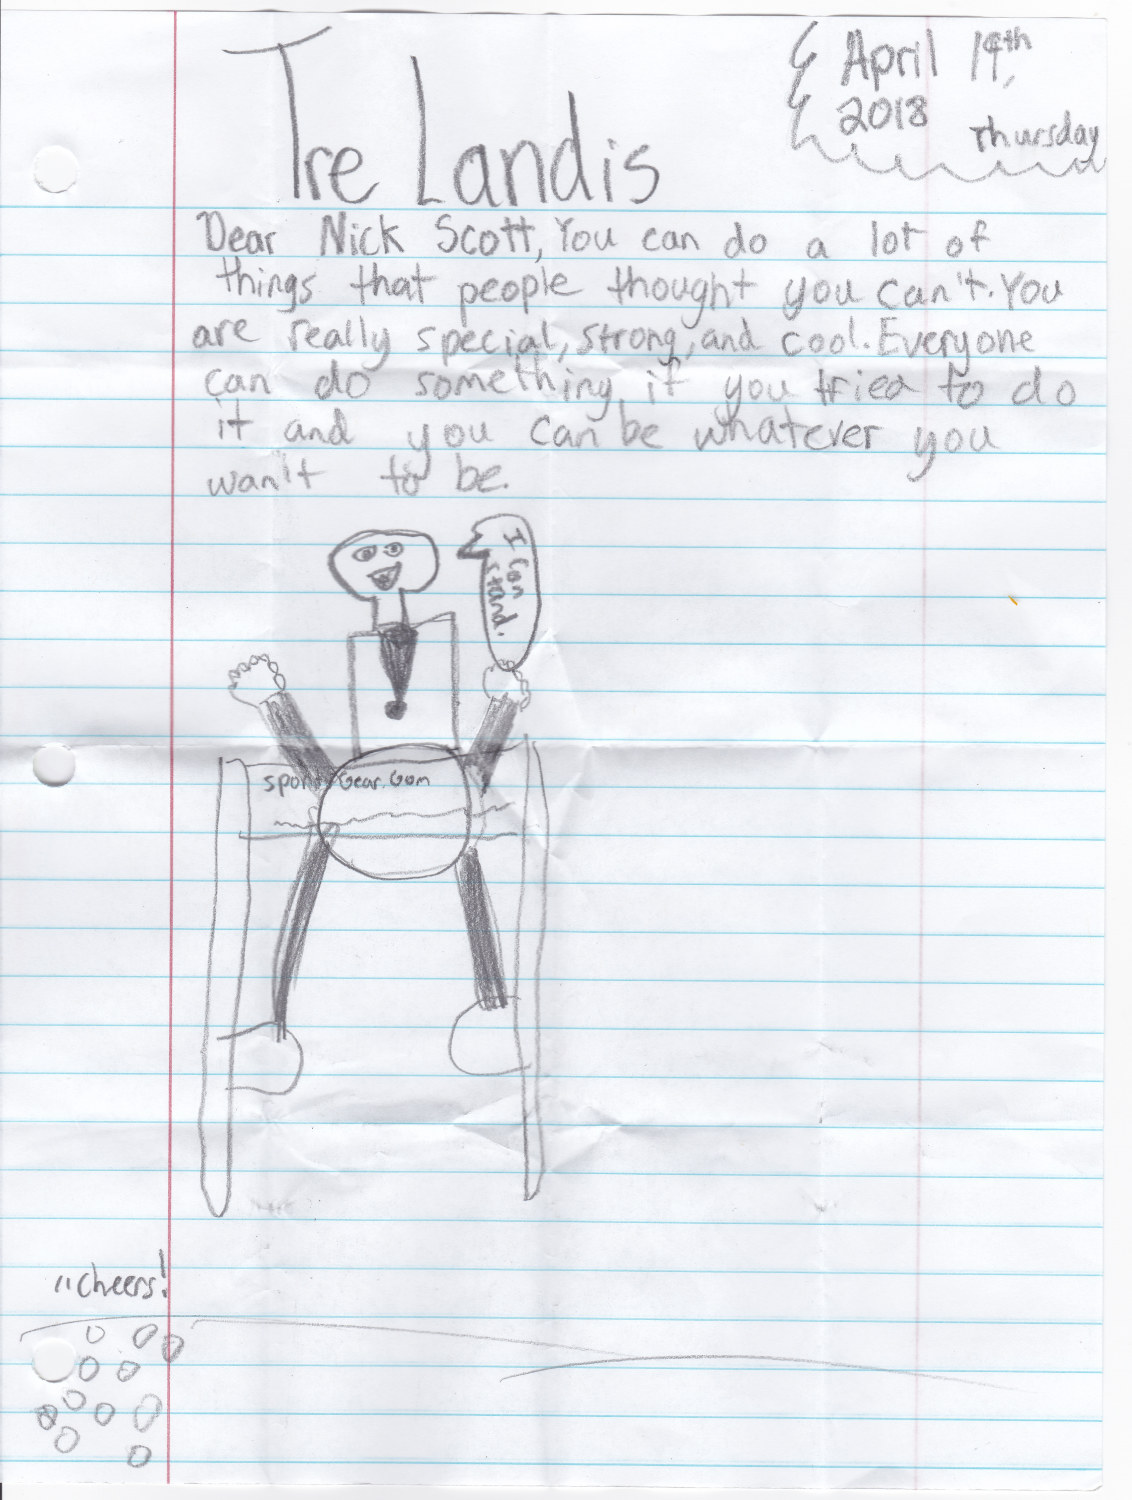 Tre Landis
April 19th,
2018 Thursday
Dear Nick Scott, You can do a lot of
things that people thought you can't. You
are really special, strong, and cool. Everyone
can do something if you tried to do
it and you can be whatever you
wan't to be.
I can
stand.
Gear.Com
"cheers!